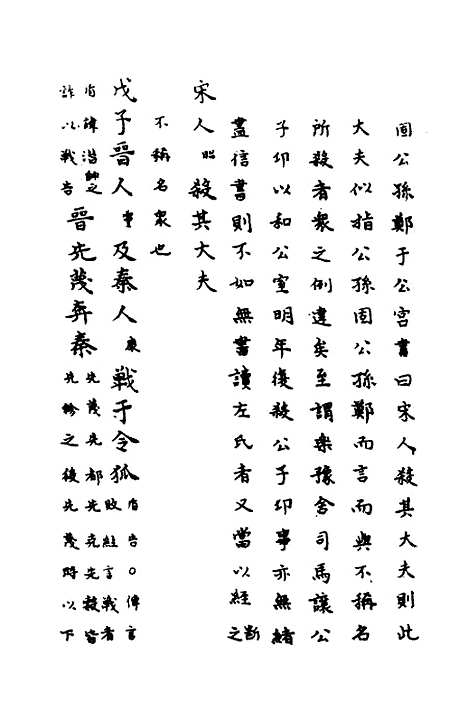 固公孫鄭于公宮書曰宋人殺其大夫則此
大夫似指公孫固公孫鄭而言而與不稱名
所殺者衆之例違矣至謂樂豫舍司馬讓公
子卬以和公室明年復殺公子卬事亦無緒
蓋信書則不如無書讀左氏者又當以經斷之
宋人昭殺其大夫
不稱名衆也
戊子晉人靈及秦人康戰于令狐皆告〇傳言敗經言戰者
有諱潜師之詐以戰告晉先蔑奔秦先蔑先都先克先縠皆先軫之後先蔑時以下